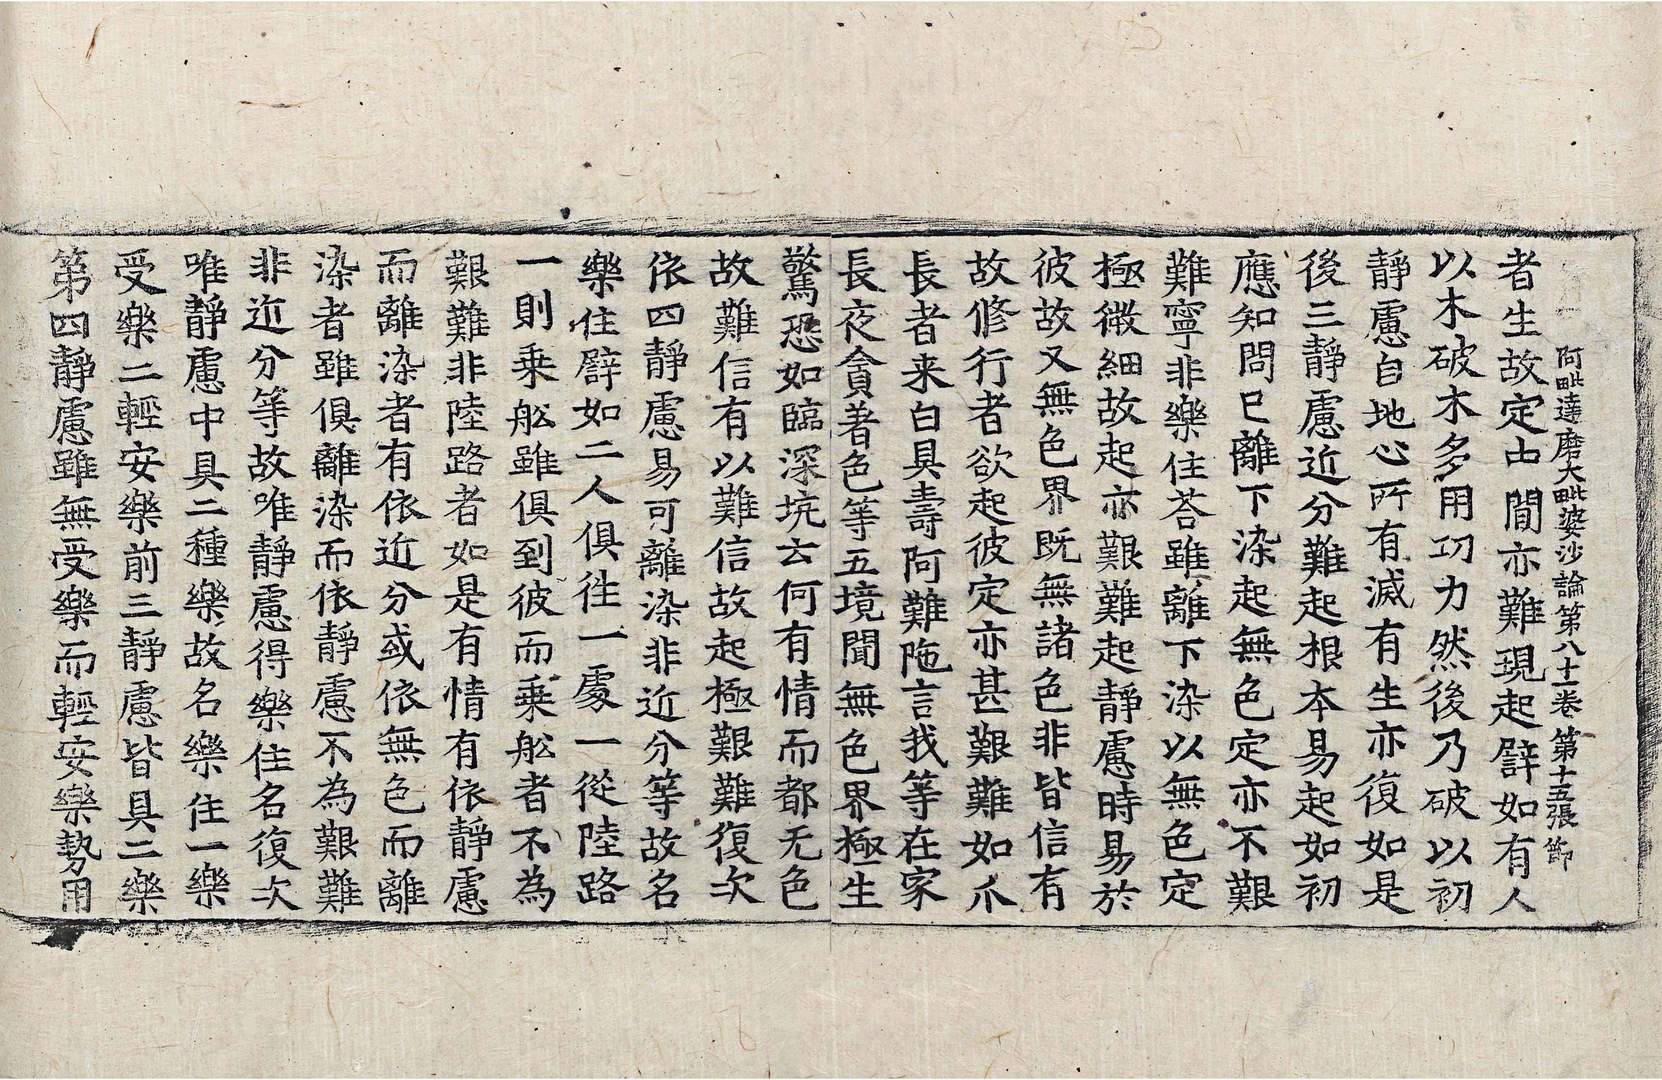 阿毗達磨大毗婆沙論第八十一卷 第十五張 節
者生故定中間亦難現起譬如有人
以木破木多用功力然後乃破以初
靜慮自地心所有滅有生亦復如是
後三靜慮近分難起根本易起如初
應知問已離下染起無色定亦不艱
難寧非樂住荅雖離下染以無色定
極微細故起亦艱難起靜慮時易於
彼故又無色界既無諸色非皆信有
故修行者欲起彼定亦甚艱難如爪
長者来白具壽阿難陁言我等在家
長夜貪著色等五境聞無色界極生
驚恐如臨深坑云何有情而都无色
故難信有以難信故起極艱難復次
依四靜慮易可離染非近分等故名
樂住譬如二人俱徃一處一從陸路
一則乗舩雖俱到彼而乗舩者不為
艱難非陸路者如是有情有依靜慮
而離染者有依近分或依無色而離
染者雖俱離染而依靜慮不為艱難
非近分等故唯靜慮得樂住名復次
唯靜慮中具二種樂故名樂住一樂
受樂二輕安樂前三靜慮皆具二樂
第四靜慮雖無受樂而輕安樂勢用